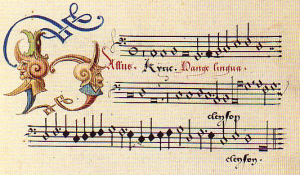 Bassus. Kyrie. Pange lingua.
eleyson
eleyson.